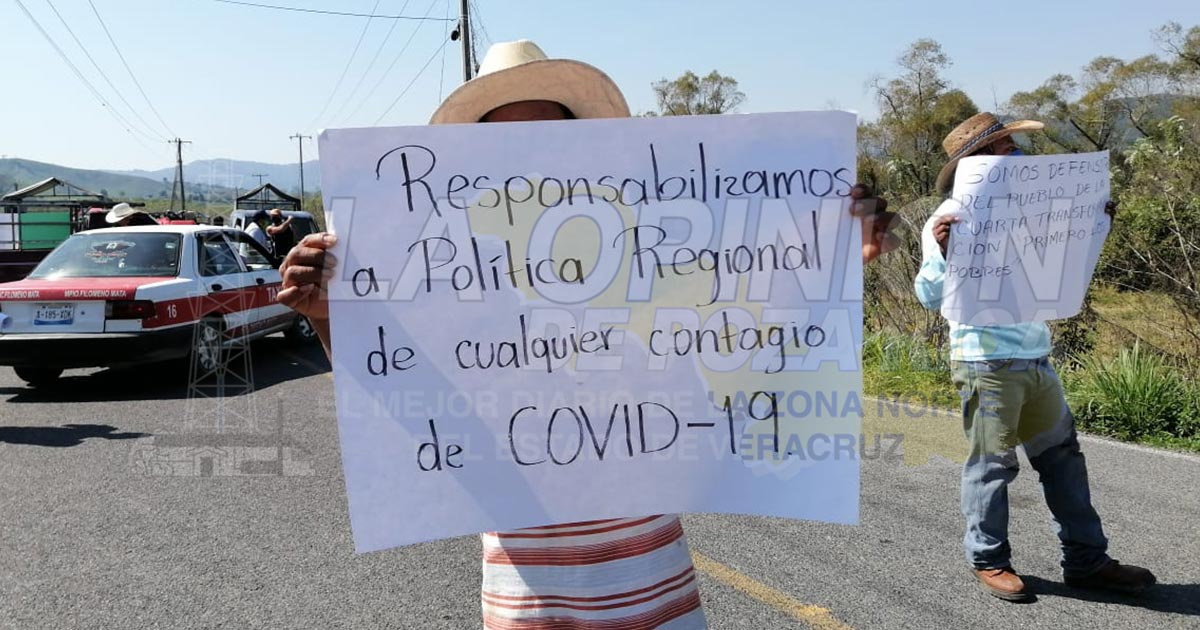 Responsabilizamos
a Política Regional
de cualquier contagio
de COVID-19.
SOMOS DEFENSO
DEL PUEBLO DE LA
CUARTA TRANSFOR
CION PRIMERO LOS
POBRES
LA OPINIÓN
DE POZA RICA
EL MEJOR DIARIO DE LA ZONA NORTE
DEL ESTADO DE VERACRUZ
MPIO. FILOMENO MATA
16
TAXI
A-185-XDK